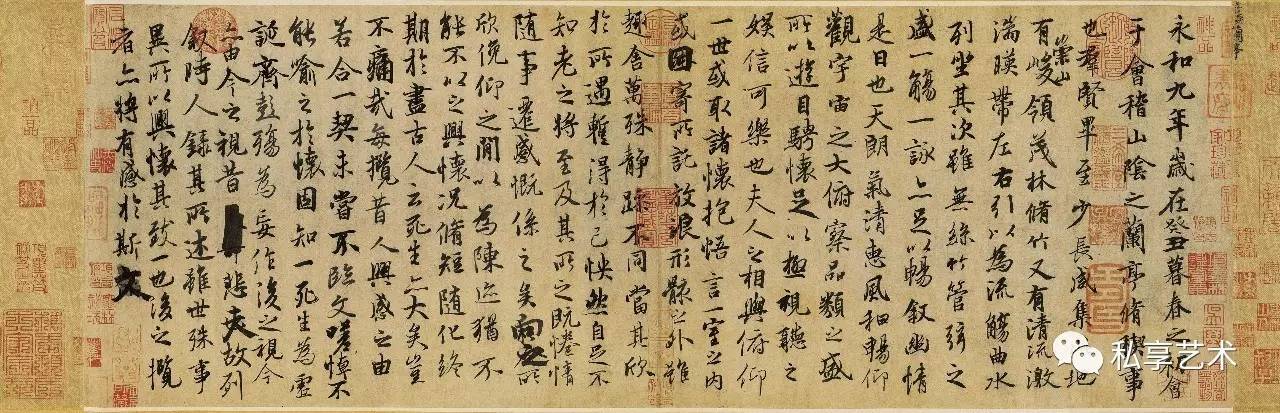 永和九年歲在癸丑暮春之初會
于會稽山陰之蘭亭脩禊事
也群賢畢至少長咸集此地
有崇山峻領茂林脩竹又有清流激
湍暎帶左右引以為流觴曲水
列坐其次雖無絲竹管弦之
盛一觴一詠亦足以暢敘幽情
是日也天朗氣清惠風和暢仰
觀宇宙之大俯察品類之盛
所以遊目騁懷足以極視聽之
娛信可樂也夫人之相與俯仰
一世或取諸懷抱悟言一室之內
或因寄所託放浪形骸之外雖
趣舍萬殊靜躁不同當其欣
於所遇暫得於己怏然自足不
知老之將至及其所之既惓情
隨事遷感慨係之矣向之所
欣俛仰之閒以為陳迹猶不
能不以之興懷況脩短隨化終
期於盡古人云死生亦大矣豈
不痛哉每攬昔人興感之由
若合一契未嘗不臨文嗟悼不
能喻之於懷固知一死生為虛
誕齊彭殤為妄作後之視今
亦由今之視昔悲夫故列
敘時人錄其所述雖世殊事
異所以興懷其致一也後之攬
者亦將有感於斯文
私享艺术